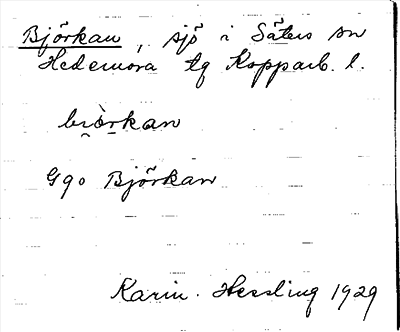 Björkan, sjö i Säters sn
Hedemora tg Kopparb. l.
bi̯òrkan
Ggo Björkan
Karin Hessling 1929